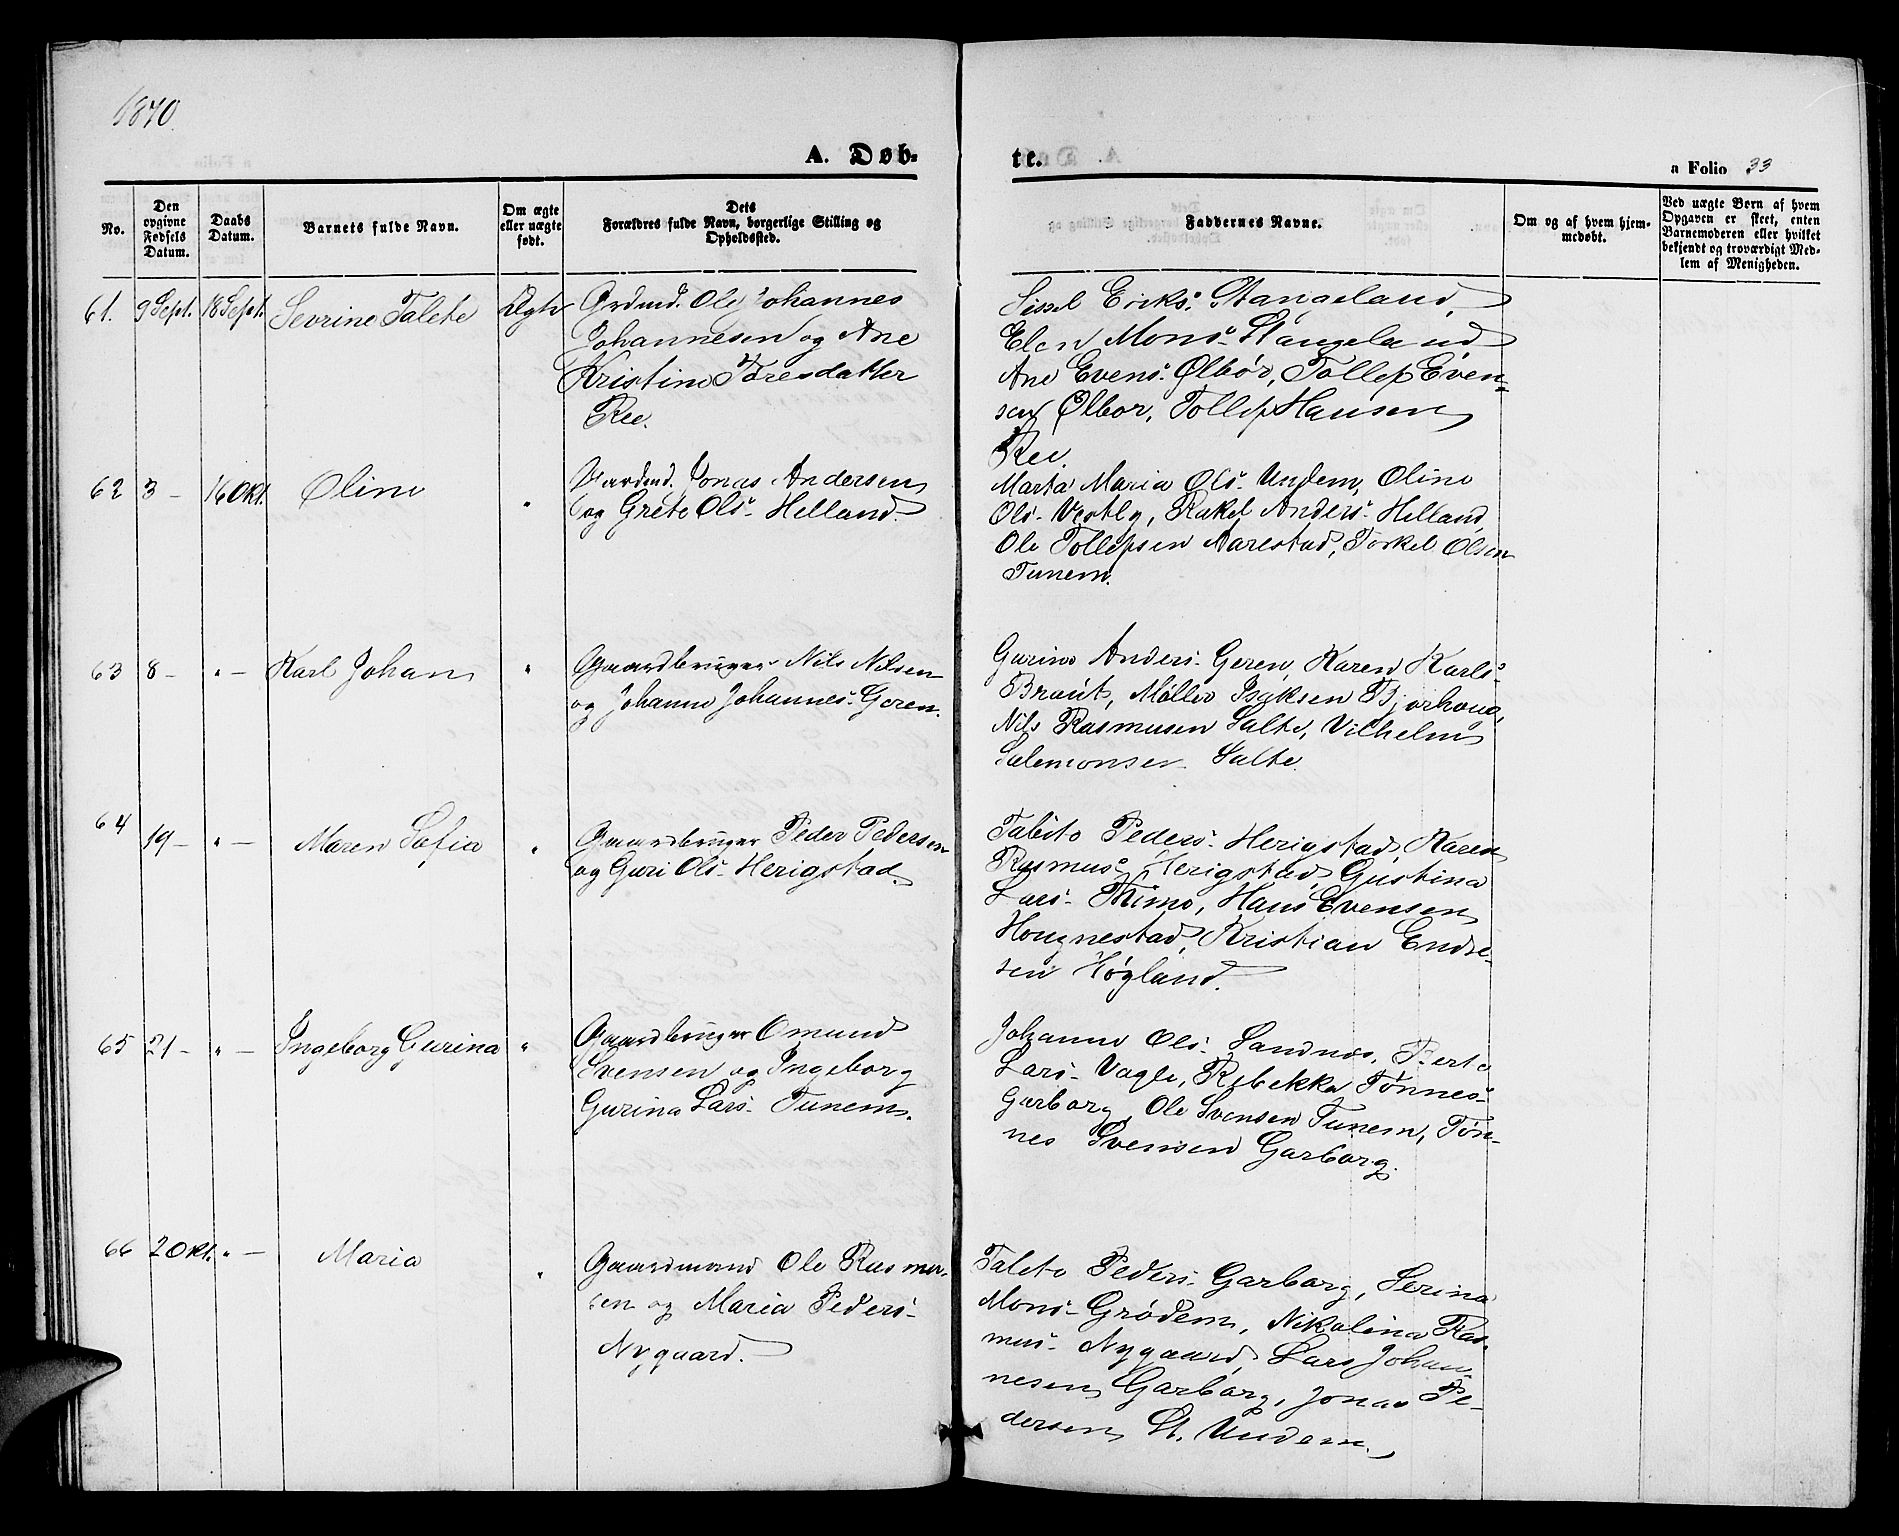 1870
A. Døb-
te.
a Folio 33
No.
Den opgivne Fødsels Datum.
Daabs Datum.
Barnets fulde Navn.
Om ægte eller uægte født.
Dets Forældres fulde Navn, borgerlige Stilling og Opholdssted.
Faddernes Navne.
Om og af hvem hjemmedøbt.
Ved uægte Børn af hvem Opgaven er skeet, enten Barnemoderen eller hvilket bekjendt og troværdigt Medlem af Menigheden.
61. 9 Sept. 18 Sept. Sevrine Talete Ægte
Grdmd. Ole Johannes
Johannesen og Ane
Kristine Toresdatter
Ree.
Sissel Eriks: Stangeland,
Elen Mons: Stangeland
Ane Evens: Ølbør, Tollef Even-
sen Ølbør, Tollef Hansen
Ree.
62 3 – 16 Okt. Oline "
Gaardmd. Jonas Andersen
og Grete Ols: Helland.
Marta Maria Ols: Undem, Oline
Ols: Vestly, Rakel Anders: Helland,
Ole Tollefsen Aarestad, Torkel Olsen
Tunem.
63 8 – " – Karl Johan "
Gaardbruger Nils Nilsen
og Johanne Johannes: Geren.
Gurine Anders: Geren, Karen Karls:
Braut, Møller Isaksen Bjorhoug,
Nils Rasmusen Salte, Vilhelm
Salemonsen Salte.
64 19 – " – Maren Sofia "
Gaardbruger Peder Pedersen
og Guri Ols: Herigstad.
Talete Peders: Herigstad, Karen
Rasmus: Herigstad, Gustina
Lars: Thime, Hans Evensen
Hougnestad, Kristian Endre-
sen Høgland.
65 21 – " – Ingeborg Gurina "
Gaardbruger Omund
Svensen og Ingeborg
Gurina Lars: Tunem.
Johanne Ols: Sandnes, Berte
Lars: Vagle, Rebekka Tønnes:
Garborg, Ole Svensen Tunem, Tøn-
nes Svensen Garborg.
66 2 Okt. " – Maria "
Gaardmand Ole Rasmus-
sen og Maria Peders:
Nygaard.
Talete Peders: Garborg, Serina
Mons: Grødem, Nikolina Ras-
mus: Nygaard, Lars Johan-
nesen Garborg, Jonas Pe-
dersen St. Undem.